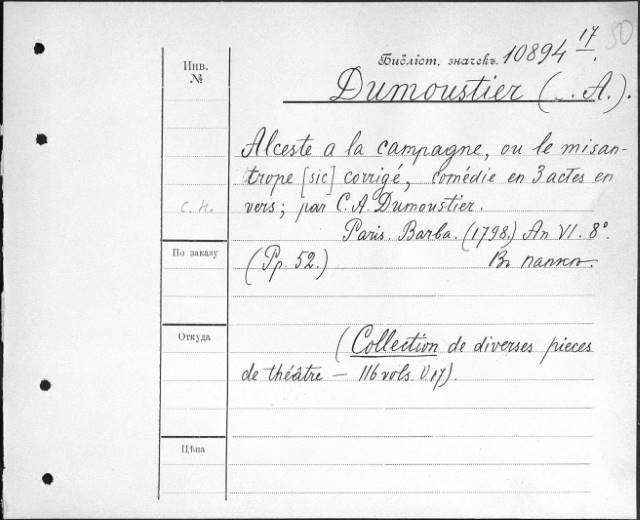 50
Библіот. значекъ. 10894 17/.
Инв.
№
Dumoustier ( . A.).
Alceste a la campagne, ou le misan-
trope [sic] corrigé, comédie en 3 actes en
C. Н. vers; par C. A. Dumoustier.
Paris. Barba. (1798.) An VI. 8°.
По заказу (Pp. 52.) Въ папкѣ.
Откуда
(Collection de diverses pieces
de théâtre — 116 vols. V. 17).
Цѣна